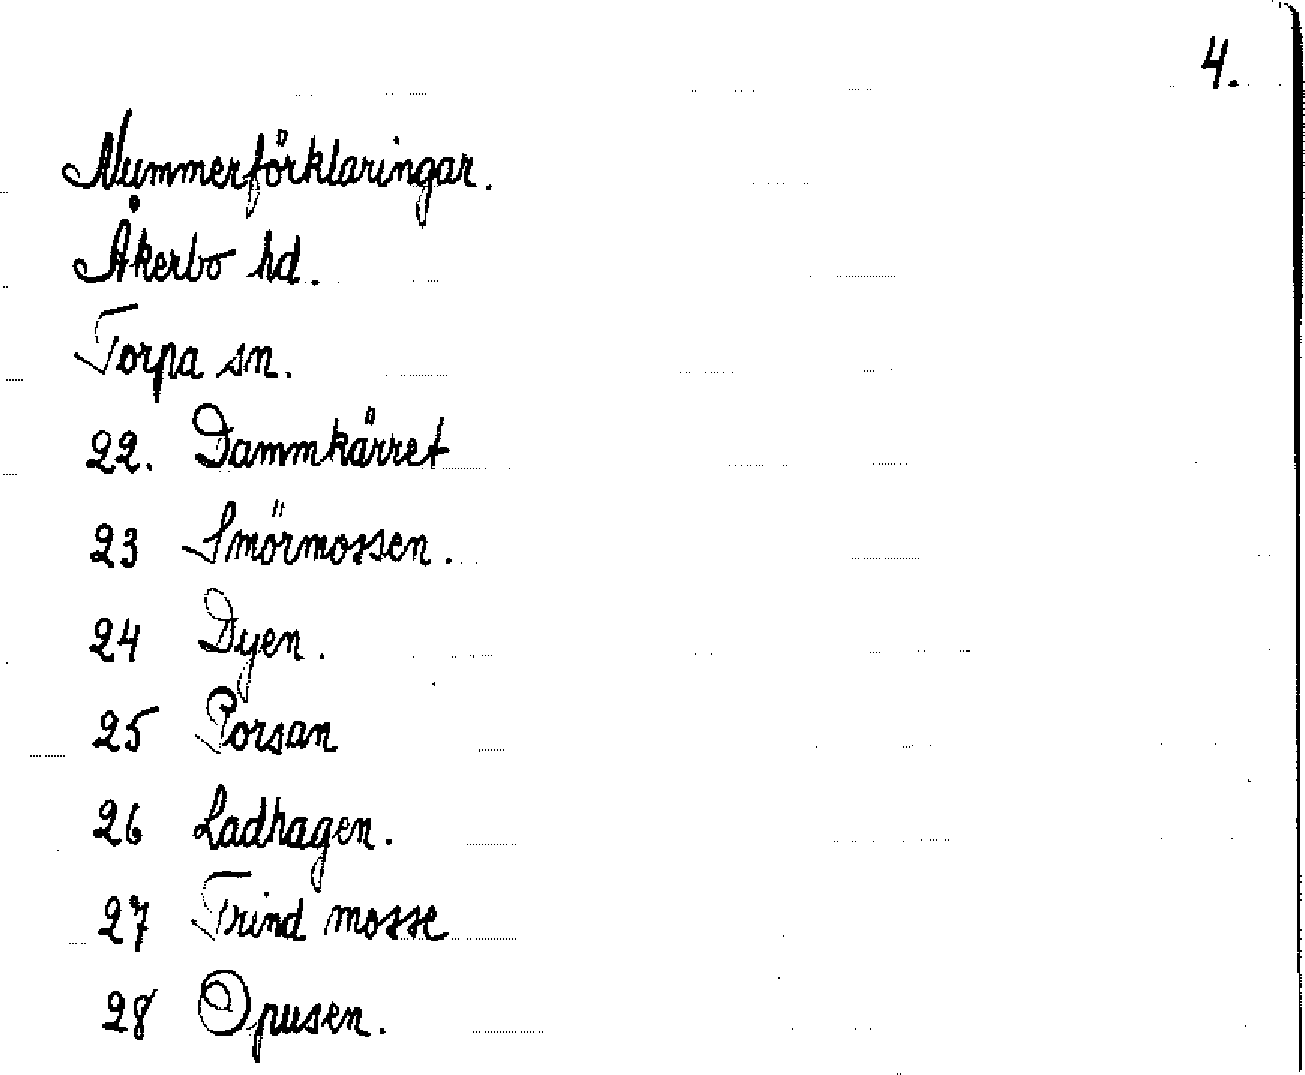 4.
Nummerförklaringar.
Åkerbo hd.
Torpa sn.
22. Dammkärret
23 Smörmossen.
24 Dyen.
25 Porsan
26 Ladhagen.
27 Trind mosse
28 Opusen.